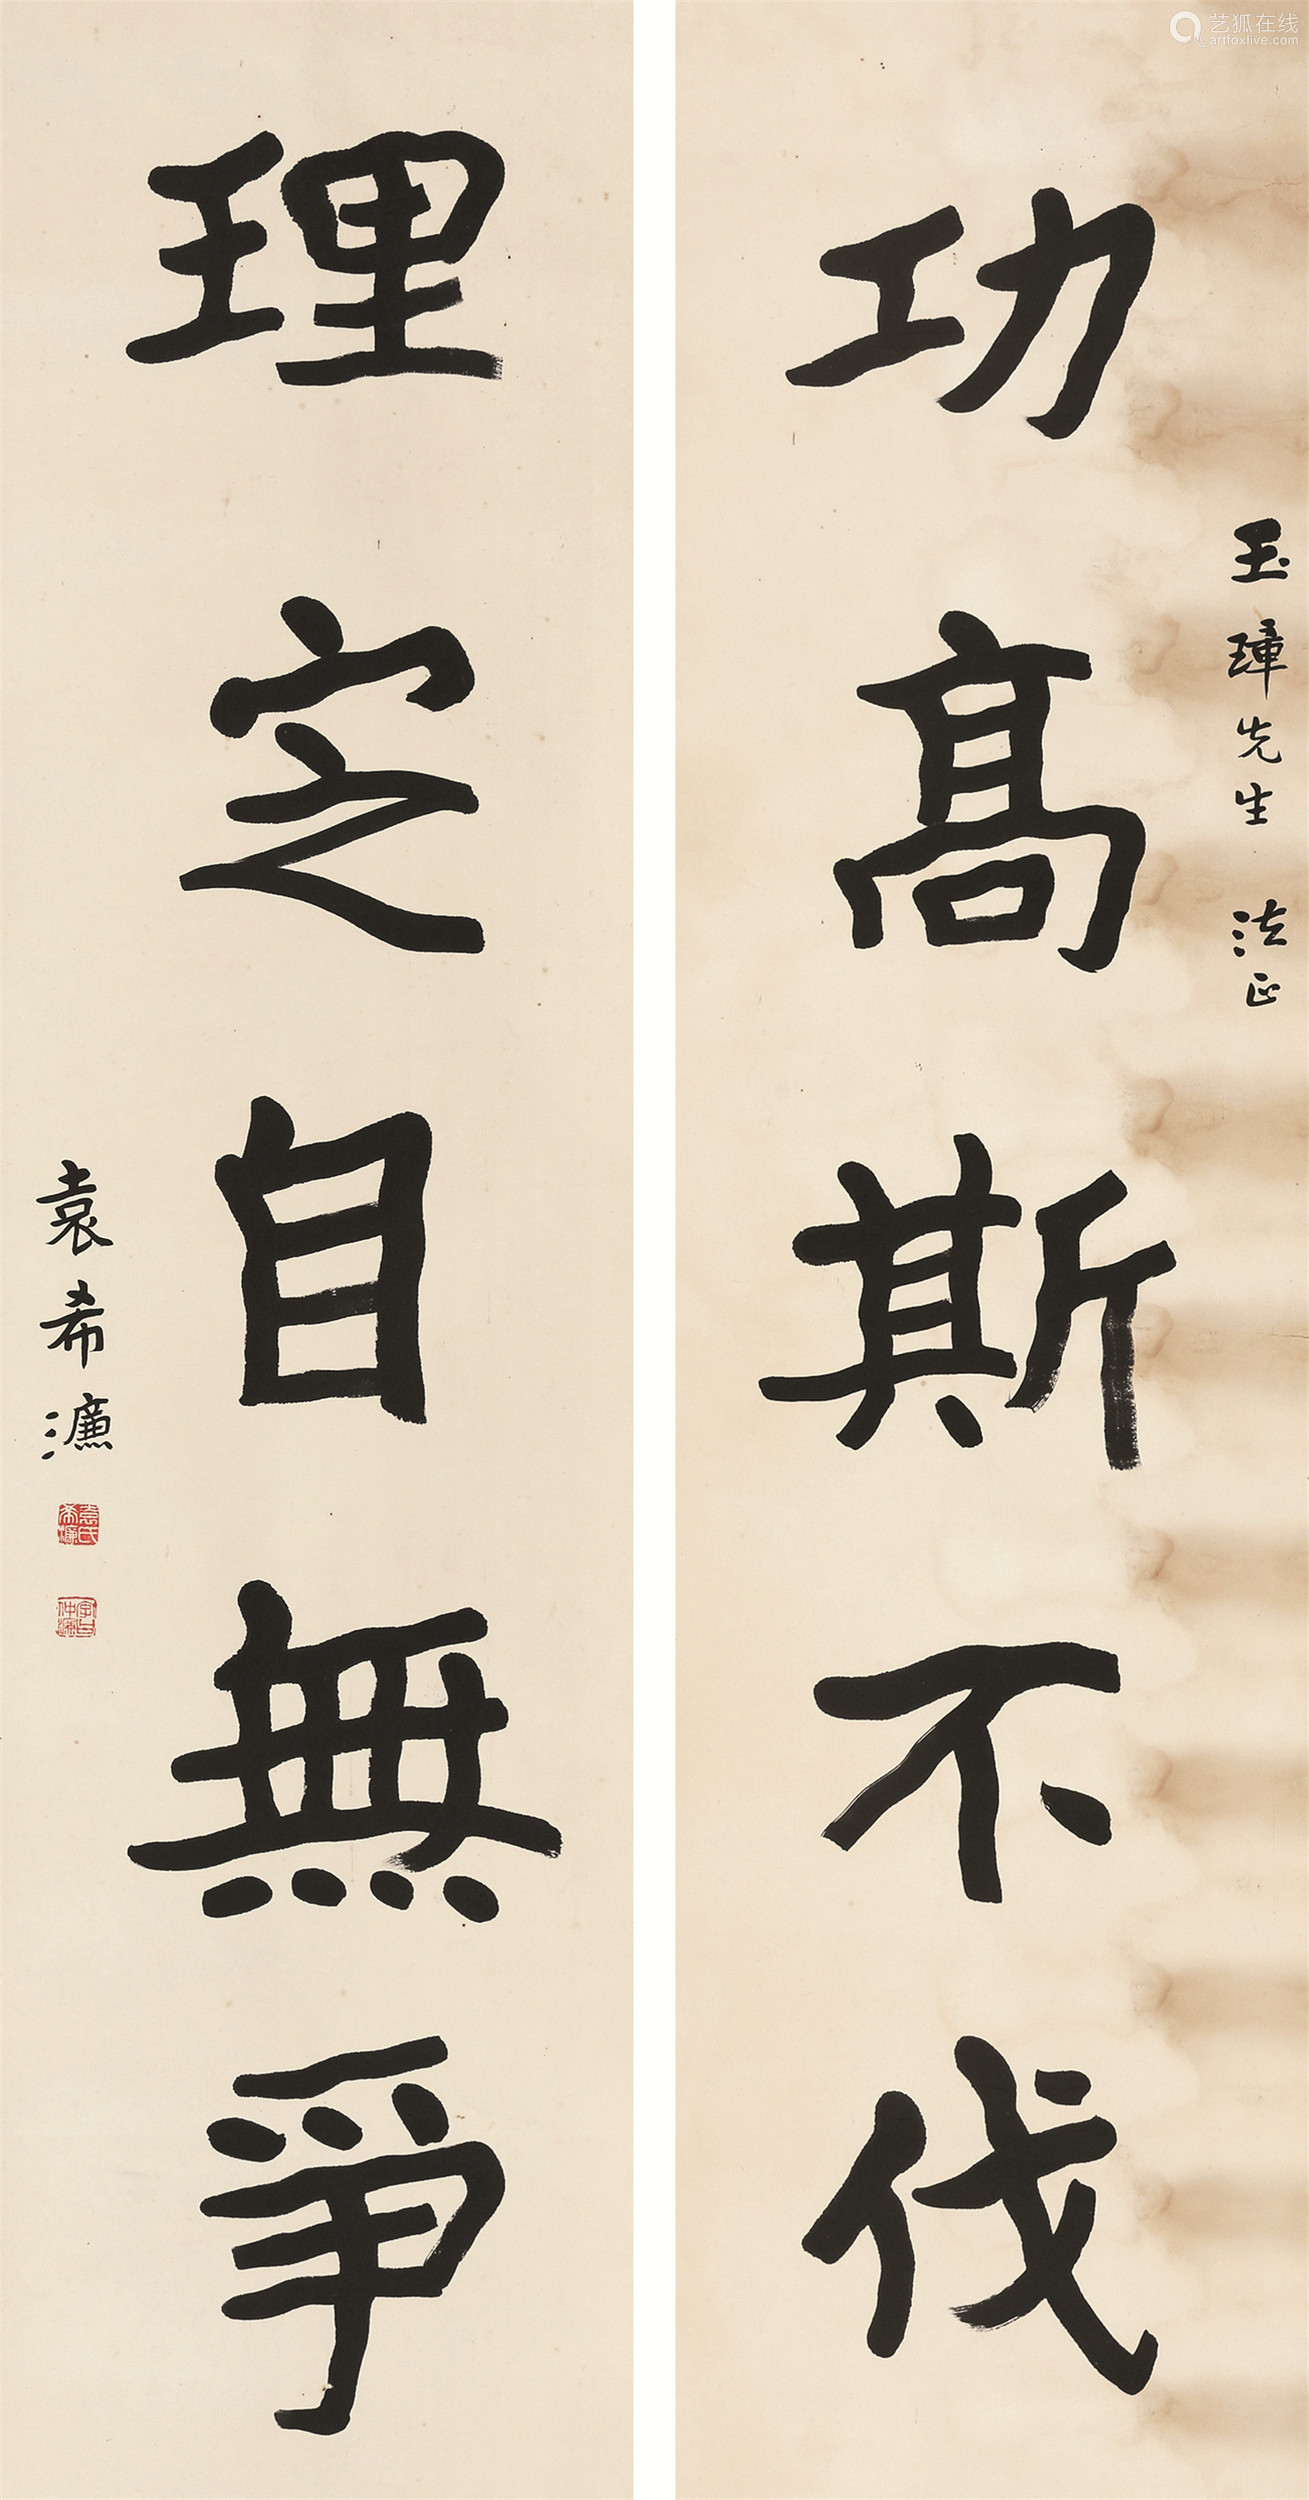 玉璋先生 法正
功高斯不伐
理定自無爭
袁希濂
袁氏希濂
字曰仲濂
艺狐在线
artfoxlive.com